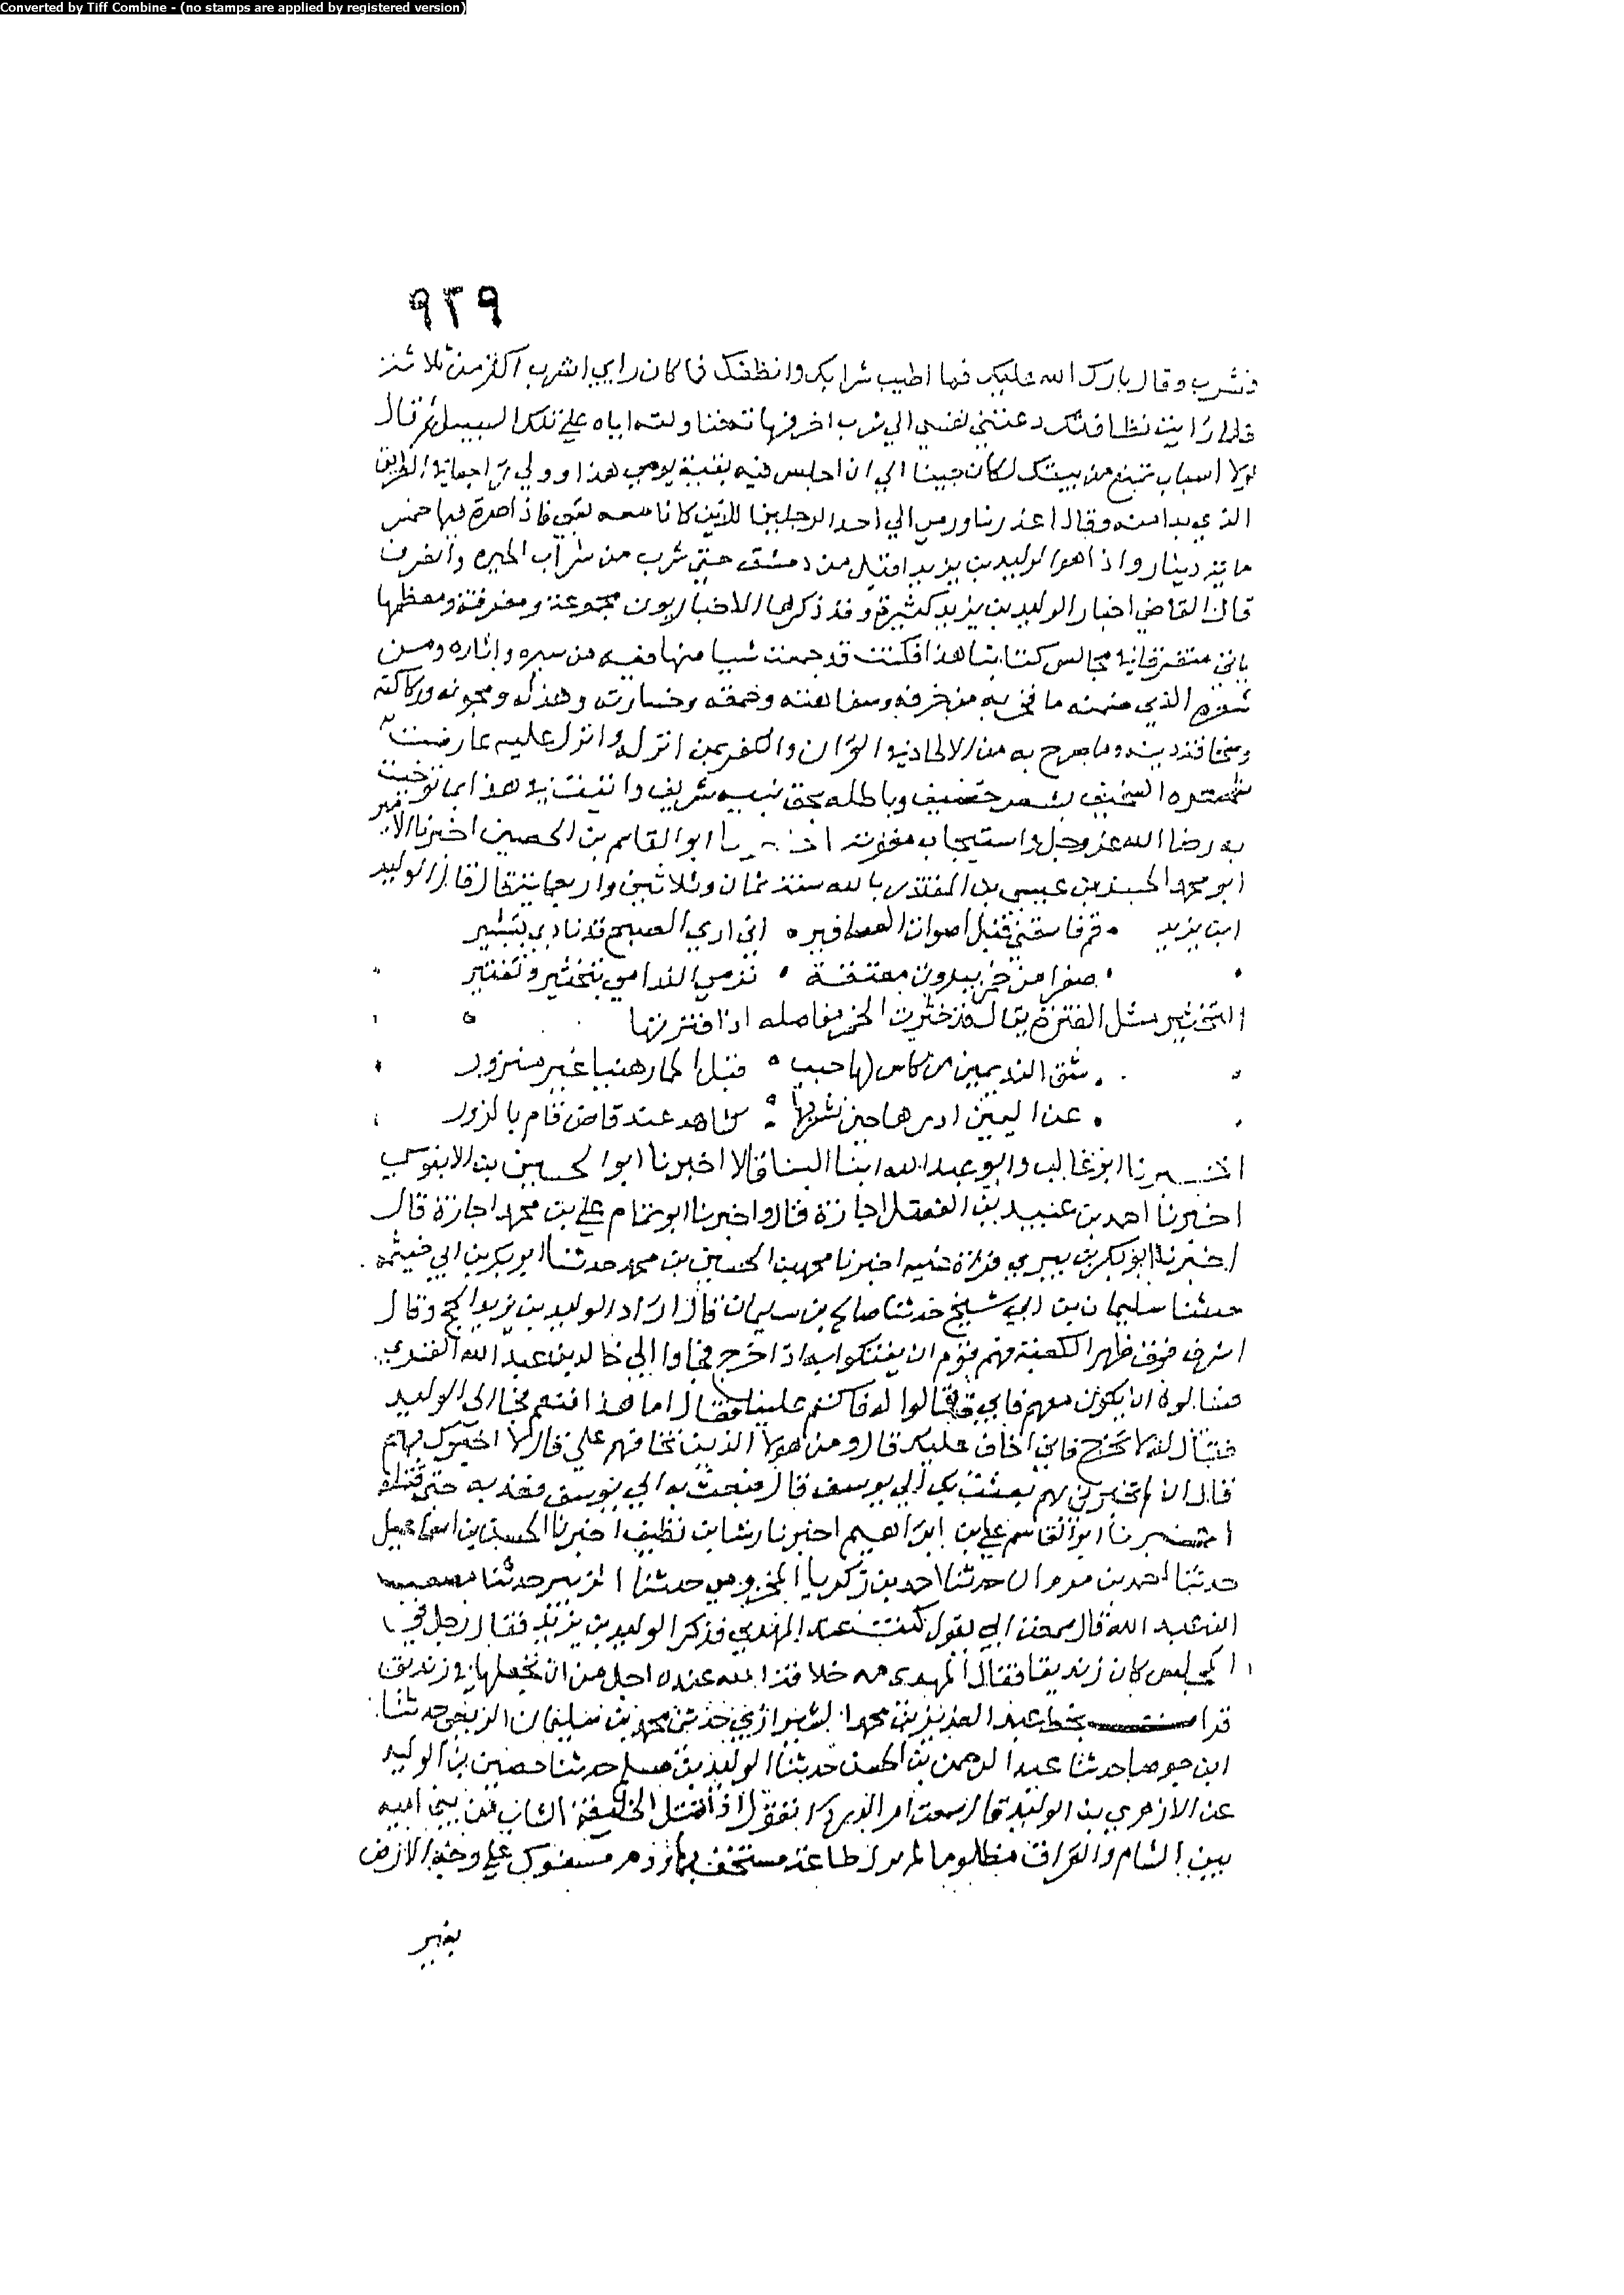 Converted by Tiff Combine - (no stamps are applied by registered version)
٩٣٩
فشرب وقال بارك الله عليك فما اطيب شرابك وانظفك فما كان رايي اشرب اكثر من ثلاثة
فلما رايت نظافتك دعتني نفسي الي شرب اخر فهاته فناولته اياه علي تلك السبيل ثم قال
لولا اسباب تمنع من بيتك لكان حبيبا الي ان اجلس فيه بقية يومي هذا وولي راجعا في الطريق
الذي بدا منه وقال اعذرنا ورمي الي احد الرجلين اللذين كانا معه بشي فاذا صرة فيها خمس
ماية دينار واذا هو الوليد بن يزيد اقبل من دمشق حتي شرب من شراب الحيره وانصرف
قال القاضي اخبار الوليد بن يزيد كثيرة وقد ذكرها الاخباريون مجموعة ومفرقة ومعظمها
ياتي متفرقا في مجالس كتابنا هذا فكنت قد جمعت شيا منها فيه من سيره واثاره ومن
شعره الذي ضمنه ما فجر به من خرقه وسفاهته وحمقه وخسارته وهزله ومجونه وركاكته
وسخافة دينه وما صرح به من الالحاد في القران والكفر بمن انزله وانزل عليه عارضت
شعره السخيف بشعر حصيف وباطله بحق نبيه شريف واتيت في هذا بما توخيت
به رضا الله عز وجل واستيجاب مغفرته اخبرنا ابو القاسم بن الحصين اخبرنا الامير
ابو محمد الحسن بن عيسي بن المقتدر بالله سنة ثمان وثلاثين واربعماية قال قال الوليد
ابن يزيد قم فاسقني قبل اصوات العصافير اني اري الصبح قد نادي بتبشير
صفرا من خمر بيروت معتقة ترمي الندامي بتخثير وتفتير
التخثير مثل الفترة يقال قد خثرت الخمر مفاصله اذا فترتها
شق النديمين من كاس لها حبب قبل الخمار هنيا غير منزور
عن اليمين ادرها حين تشربها شاهد عند قاض قام بالزور
اخبرنا ابو غالب وابو عبد الله ابنا البنا قالا اخبرنا ابو الحسين بن الابنوسي
اخبرنا احمد بن عبيد بن الفضل اجازة قالوا اخبرنا ابو تمام علي بن محمد اجازة قال
اخبرنا ابو بكر بن بيري قراة عليه اخبرنا محمد بن الحسين بن محمد حدثنا ابو بكر بن ابي خيثمه
حدثنا سليمان بن ابي شيخ حدثنا صالح بن سليمان قال اراد الوليد بن يزيد الحج وقال
اشرف فوق ظهر الكعبة فهم قوم ان يفتكوا به اذا خرج فجاوا الي خالد بن عبد الله القسري
فسالوه ان يكون معهم فابي فقالوا له فاكتم علينا فقال اما هذا فنعم فجا الي الوليد
فقال له لا تخرج فاني اخاف عليك قال ومن هولا الذين تخافهم علي قال لا اخبرك بهم
قال ان لم تخبرني بهم بعثت بك الي يوسف قال فبعث به الي يوسف فعذبه حتي قتله
اخبرنا ابو القاسم علي بن ابراهيم اخبرنا رشا بن نظيف اخبرنا الحسن بن اسماعيل
حدثنا احمد بن مروان حدثنا احمد بن زكريا المخزومي حدثنا الزبير حدثنا مصعب
ابن عبد الله قال سمعت ابي يقول كنت عند المهدي فذكر الوليد بن يزيد فقال رجل في
المجلس كان زنديقا فقال المهدي مه خلافة الله عنده اجل من ان يجعلها في زنديق
قرات بخط عبد العزيز بن محمد الشيرازي حدثني محمد بن سليمان الربعي حدثنا
ابن جوصا حدثنا عبد الرحمن بن الحسن حدثنا الوليد بن مسلم حدثنا حصين بن الوليد
عن الازهري بن الوليد قال سمعت ام الدرداء تقول اذا قتل الخليفة الشاب من بني اميه
بين الشام والعراق مظلوما لم يزل طاعة مستخف بها ودم مسفوك علي وجه الارض
بغير